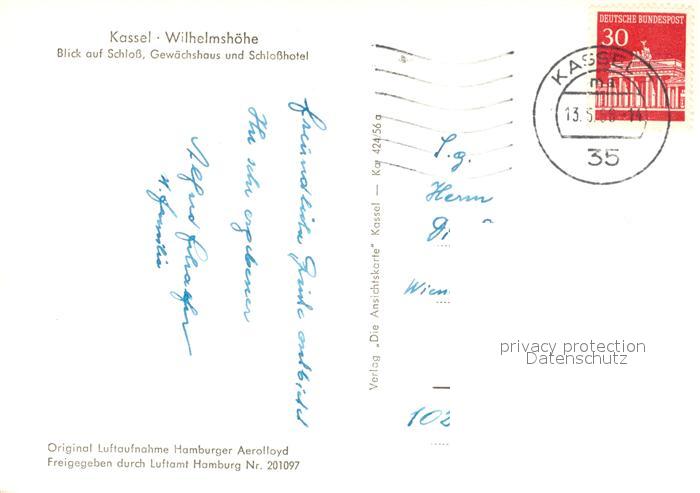 Kassel · Wilhelmshöhe
Blick auf Schloß, Gewächshaus und Schloßhotel
freundliche Grüße entbietet
Ihr sehr ergebener
Alfred
u. Familie
Original Luftaufnahme Hamburger Aerolloyd
Freigegeben durch Luftamt Hamburg Nr. 201097
Verlag „Die Ansichtskarte" Kassel — Kar 424/56 a
DEUTSCHE BUNDESPOST
30
KASSEL
ma
13.5.
35
S. g.
Herrn
Di
Wien
102
privacy protection
Datenschutz